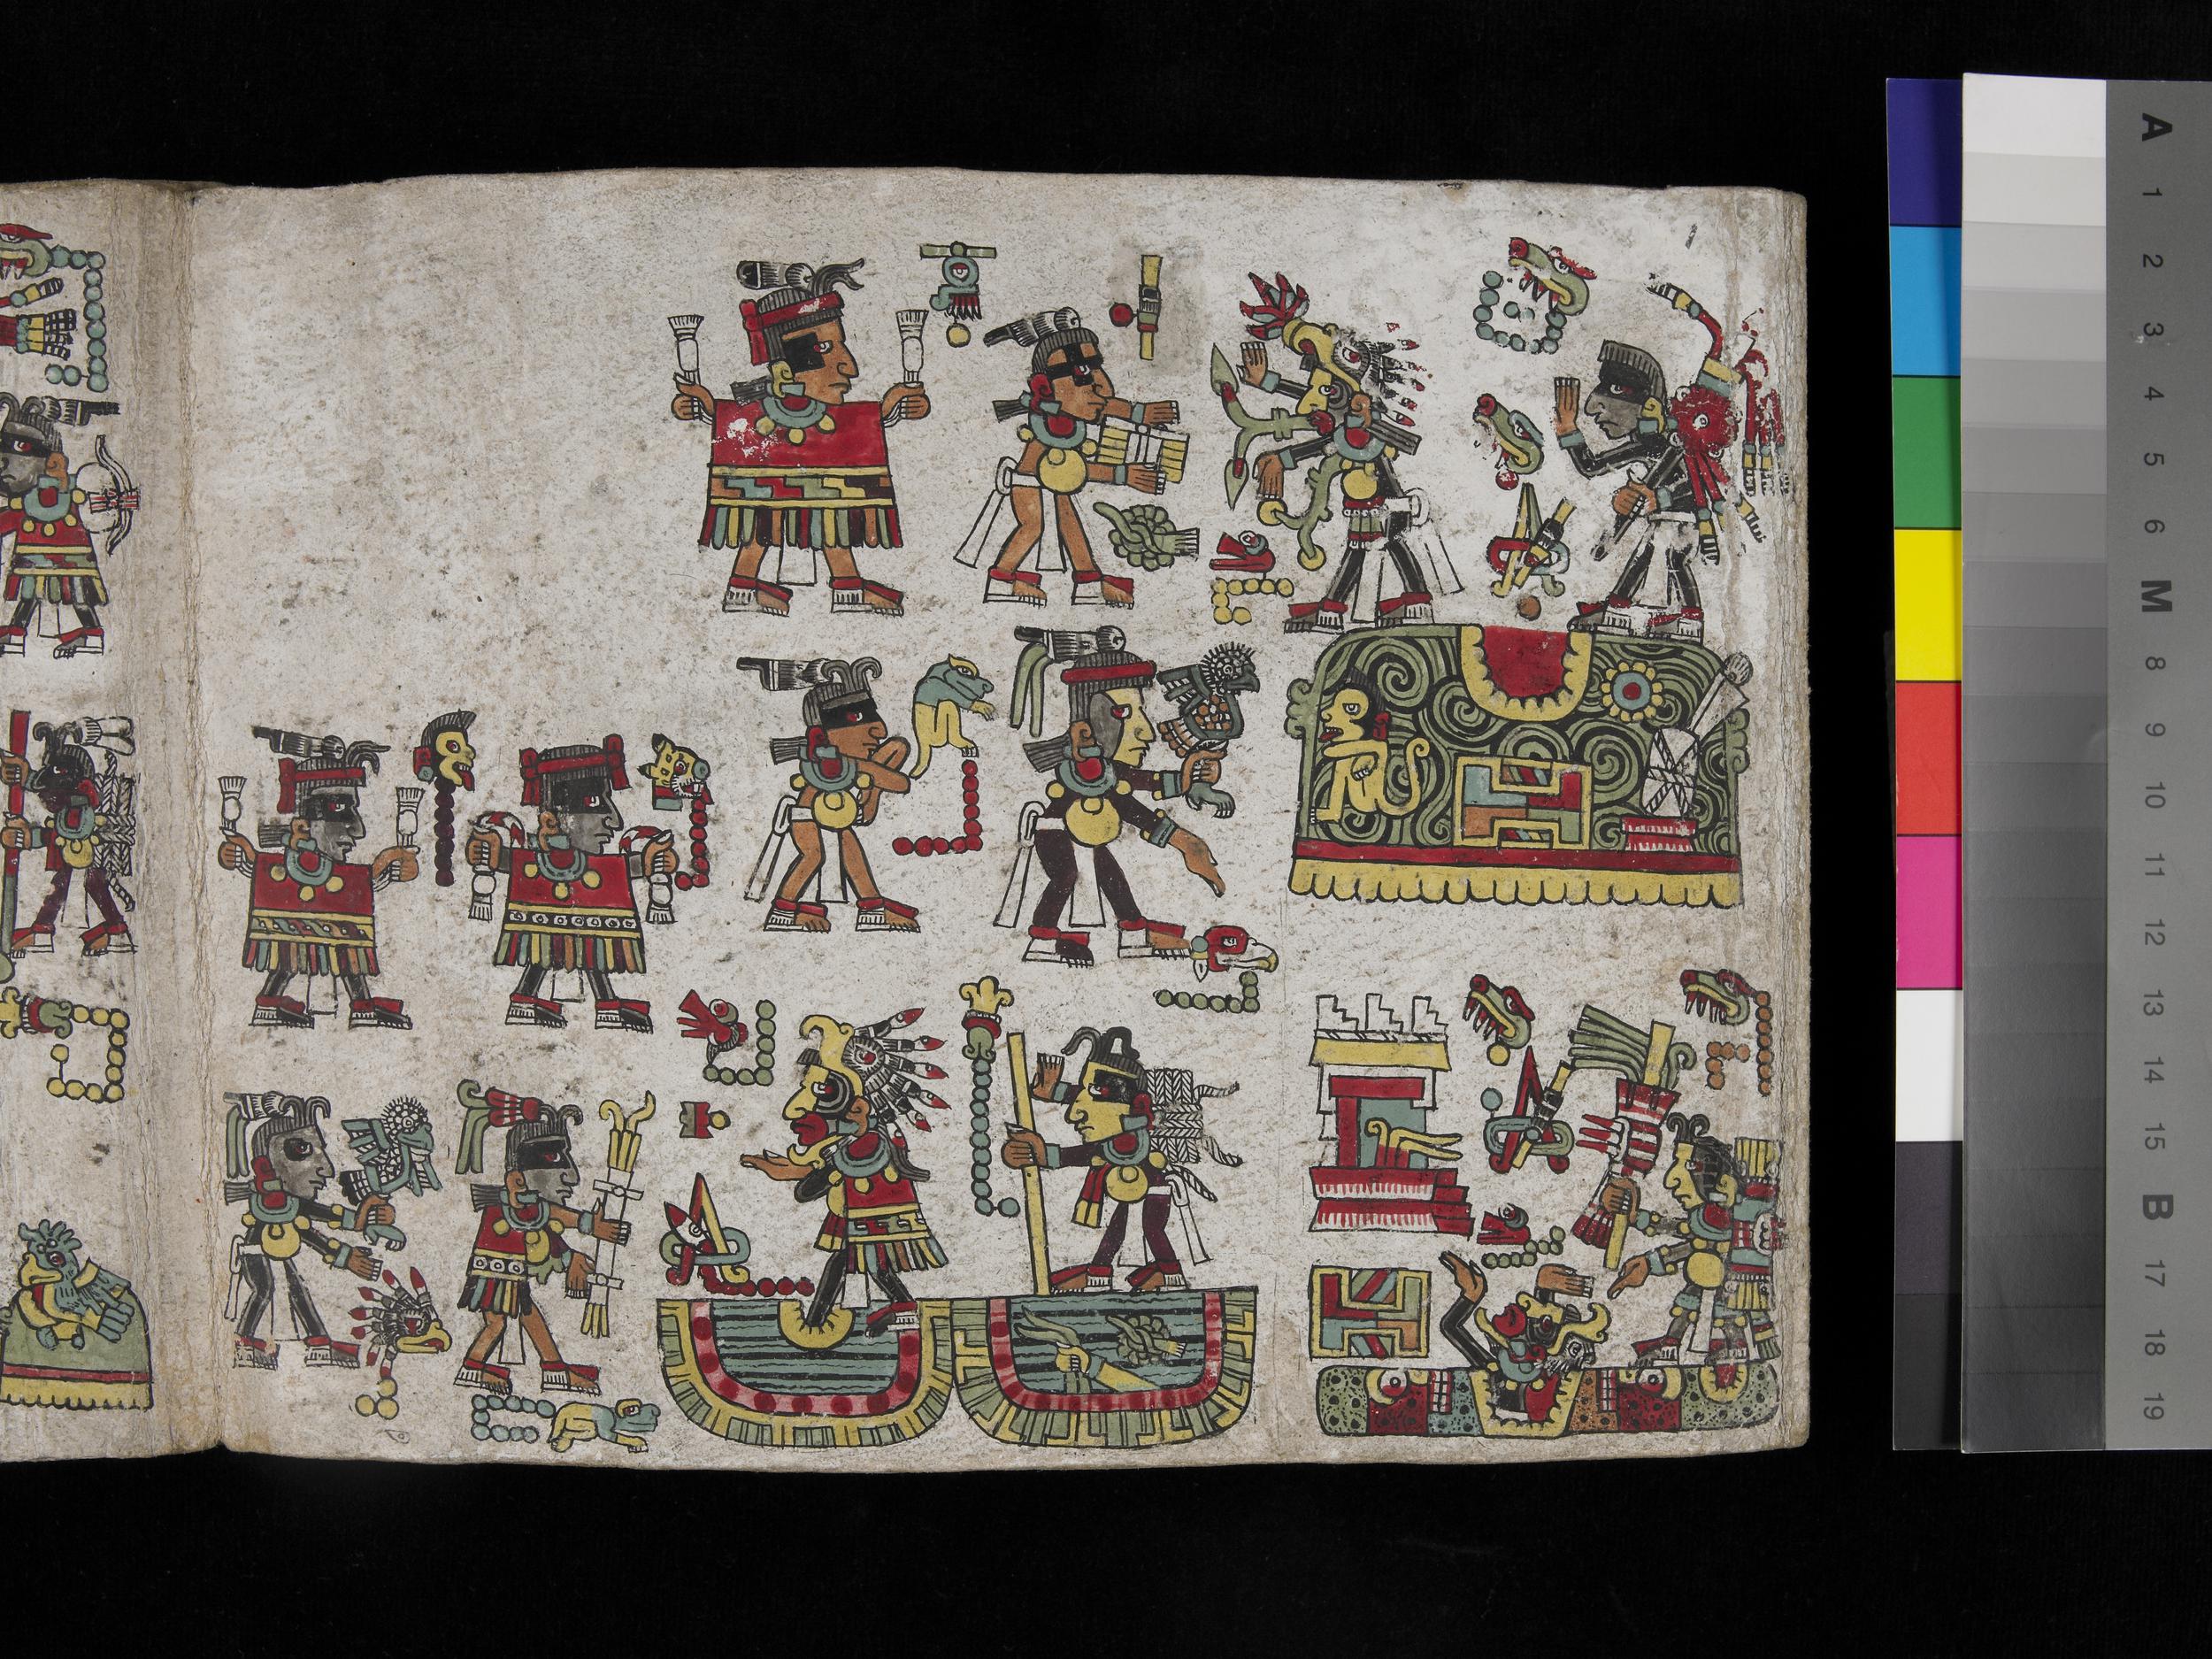 A
1
2
3
4
5
6
M
8
9
10
11
12
13
14
15
B
17
18
19